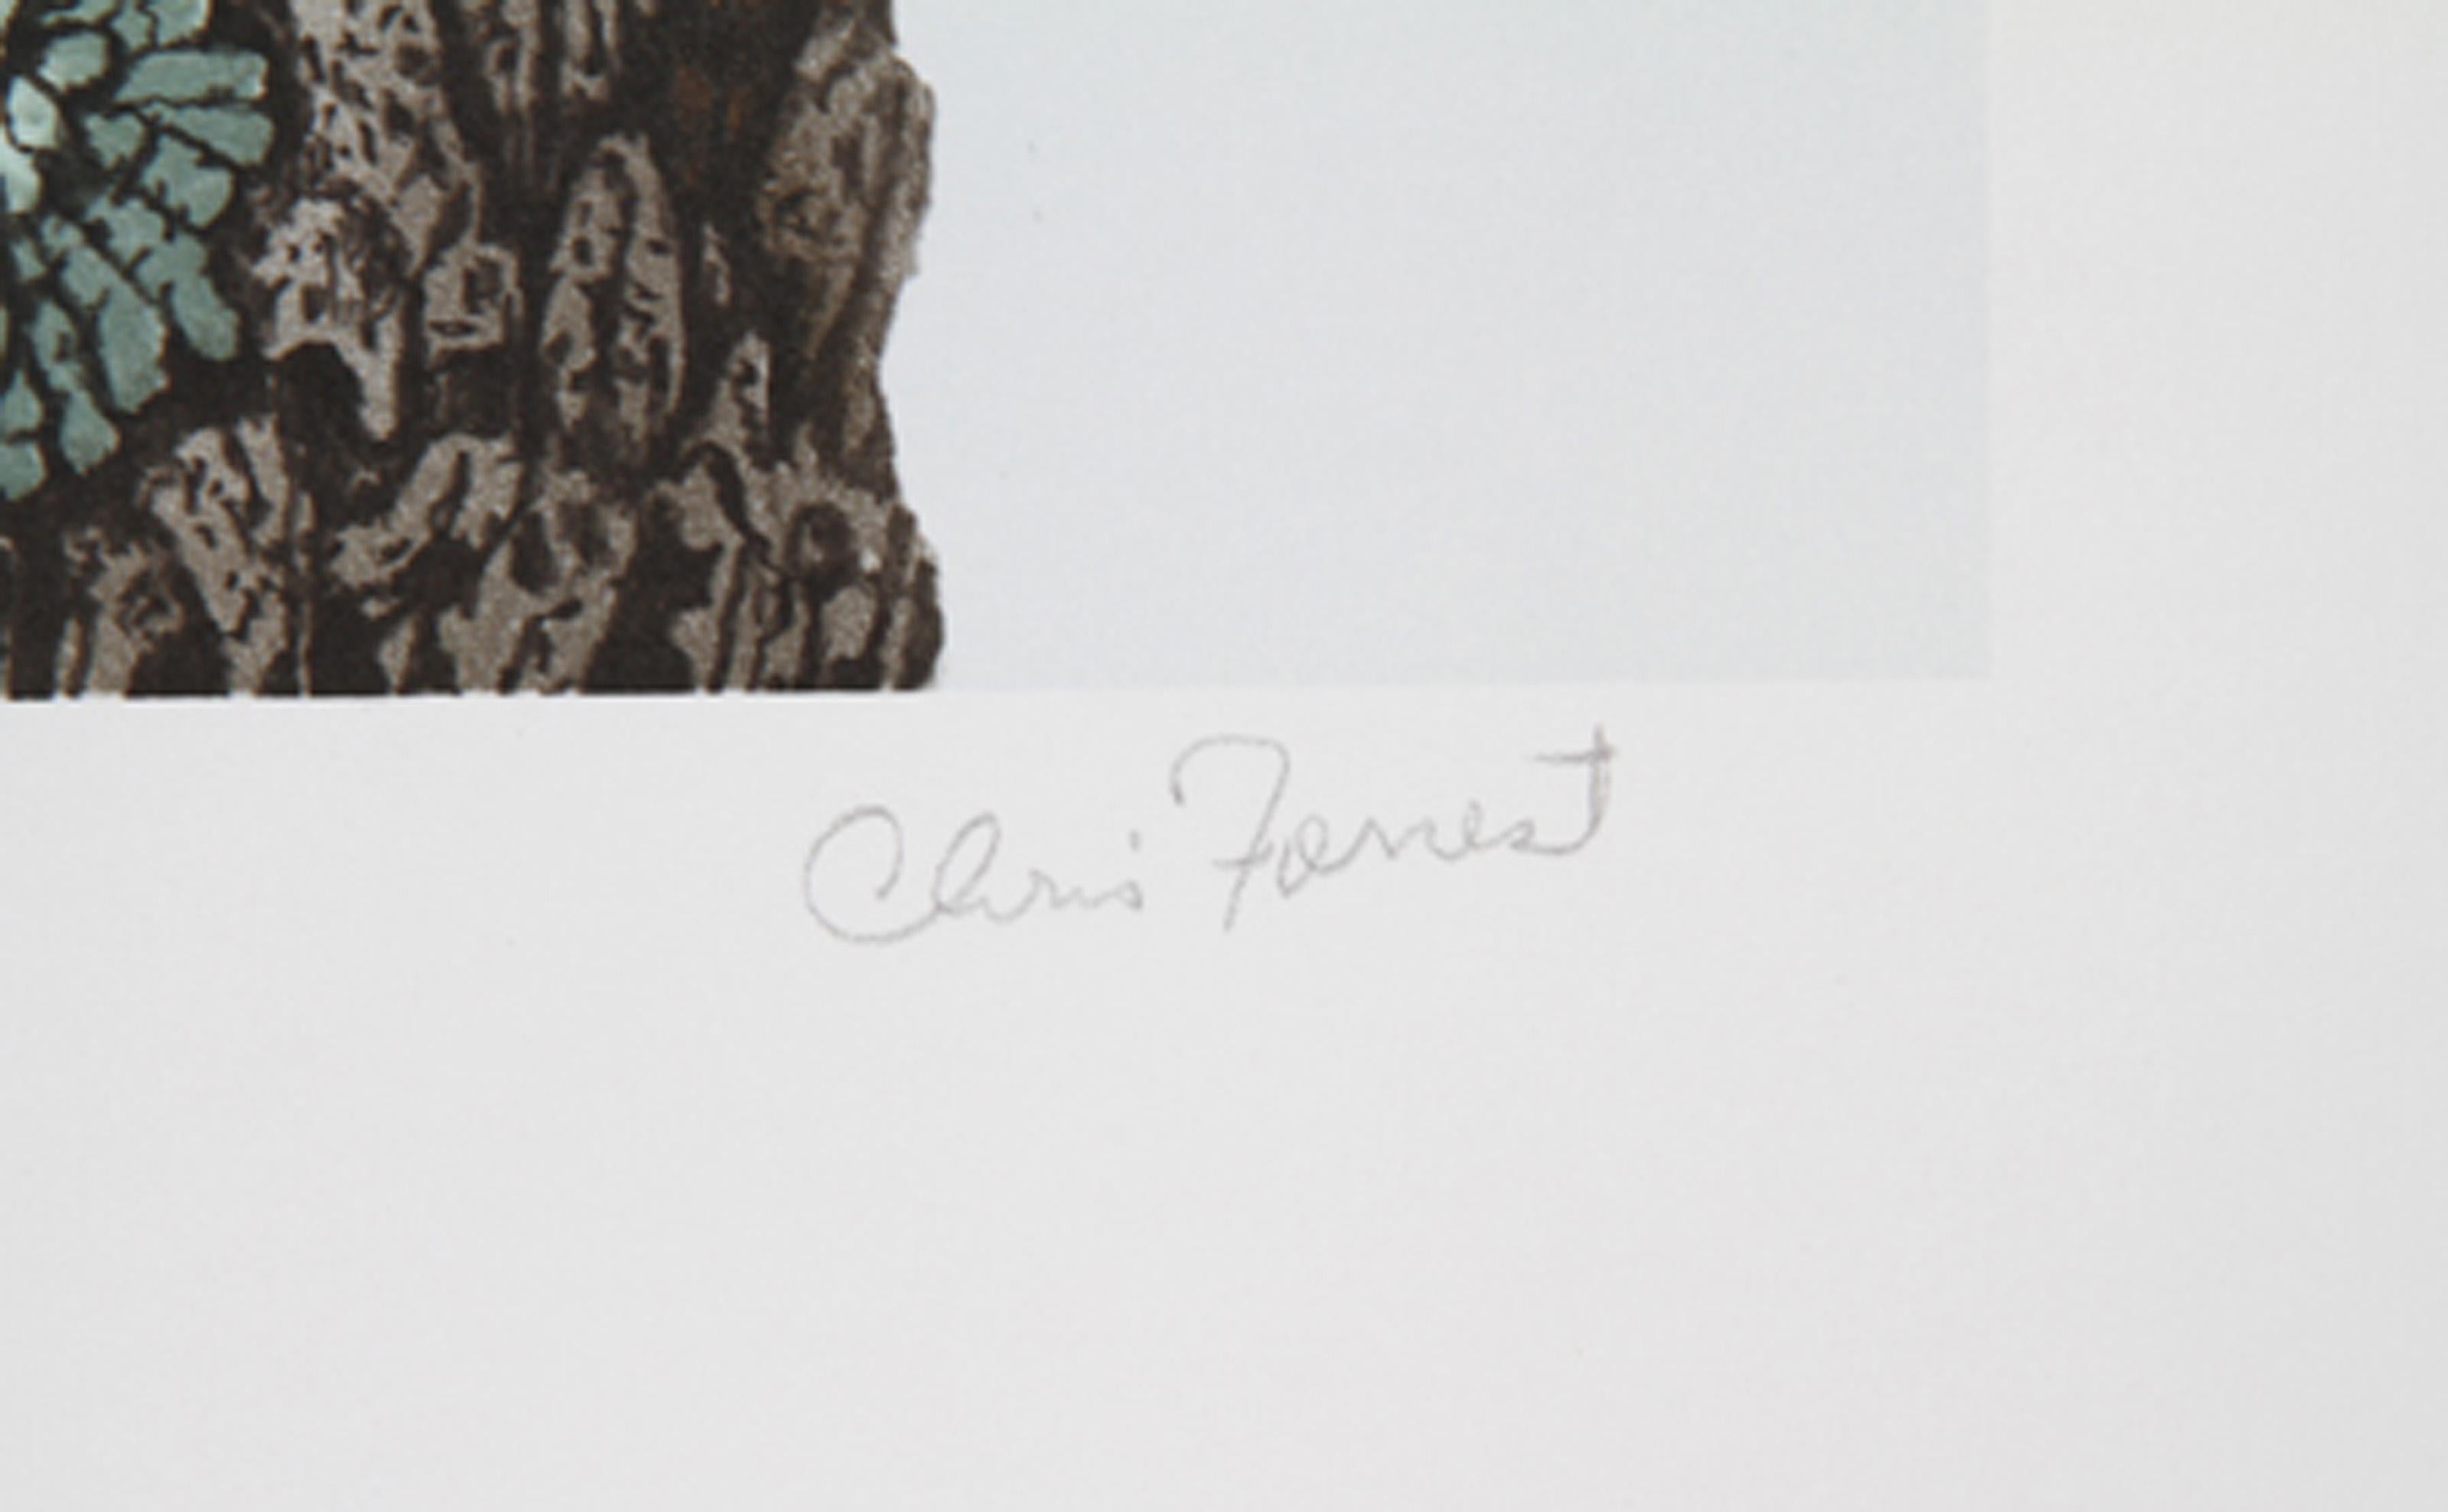 Chris Forrest